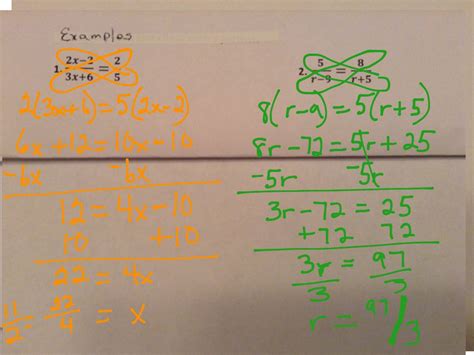 Examples
1. 2x-2/3x+6 = 2/5
2(3x+6)=5(2x-2)
6x+12=10x-10
-6x -6x
12 = 4x-10
10 +10
22 = 4x
11/2 = 22/4 = x
2. 5/r-9 = 8/r+5
8(r-9)=5(r+5)
8r-72=5r+25
-5r -5r
3r-72=25
+72 72
3r/3 = 97/3
r = 97/3